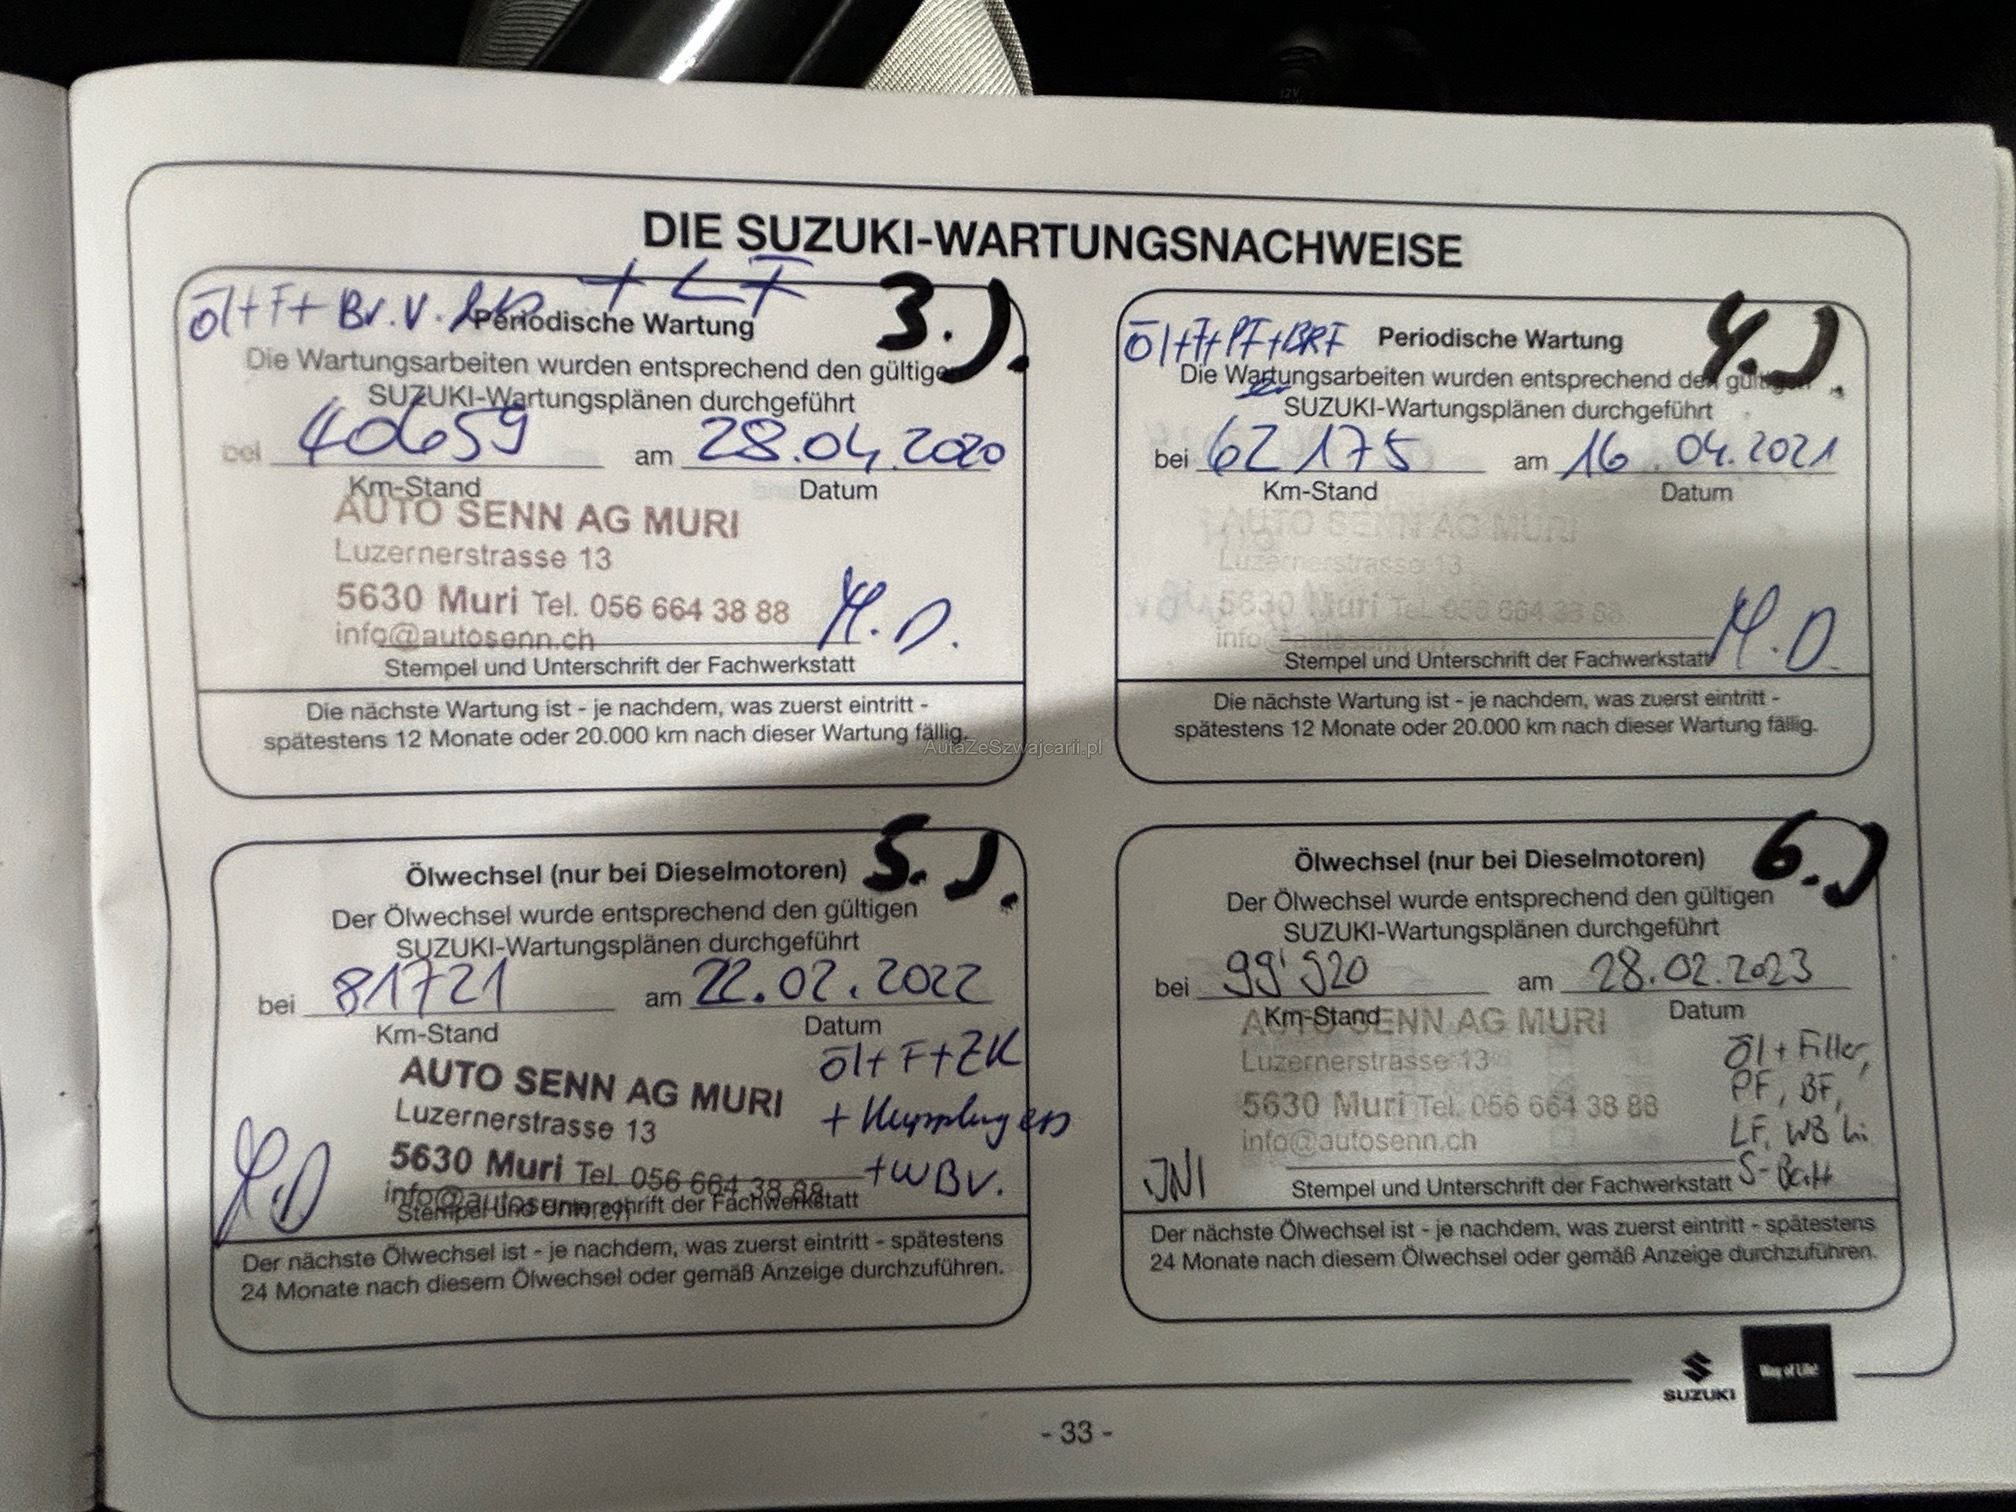 DIE SUZUKI-WARTUNGSNACHWEISE
+ LF
Öl+F+ Br.V.
3.).
Periodische Wartung
Die Wartungsarbeiten wurden entsprechend den gültigen
SUZUKI-Wartungsplänen durchgeführt
bei 40659 am 28.04.2020
Km-Stand Datum
AUTO SENN AG MURI
Luzernerstrasse 13
5630 Muri Tel. 056 664 38 88
info@autosenn.ch
M.D.
Stempel und Unterschrift der Fachwerkstatt
Die nächste Wartung ist - je nachdem, was zuerst eintritt -
spätestens 12 Monate oder 20.000 km nach dieser Wartung fällig.
Öl+F+PF+BRF
Periodische Wartung
4.).
Die Wartungsarbeiten wurden entsprechend den gültigen
SUZUKI-Wartungsplänen durchgeführt
bei 62175 am 16.04.2021
Km-Stand Datum
AUTO SENN AG MURI
Luzernerstrasse 13
5630 Muri Tel. 056 664 38 88
info@autosenn.ch
M.D.
Stempel und Unterschrift der Fachwerkstatt
Die nächste Wartung ist - je nachdem, was zuerst eintritt -
spätestens 12 Monate oder 20.000 km nach dieser Wartung fällig.
AutaZeSzwajcarii.pl
Ölwechsel (nur bei Dieselmotoren)
5.).
Der Ölwechsel wurde entsprechend den gültigen
SUZUKI-Wartungsplänen durchgeführt
bei 81721 am 22.02.2022
Km-Stand Datum
Öl+F+ZK
AUTO SENN AG MURI
Luzernerstrasse 13
+ Kupplung
5630 Muri Tel. 056 664 38 88
+WBV.
info@autosenn.ch
M.D
Stempel und Unterschrift der Fachwerkstatt
Der nächste Ölwechsel ist - je nachdem, was zuerst eintritt - spätestens
24 Monate nach diesem Ölwechsel oder gemäß Anzeige durchzuführen.
Ölwechsel (nur bei Dieselmotoren)
6.)
Der Ölwechsel wurde entsprechend den gültigen
SUZUKI-Wartungsplänen durchgeführt
bei 99'920 am 28.02.2023
Km-Stand Datum
AUTO SENN AG MURI
Luzernerstrasse 13
5630 Muri Tel. 056 664 38 88
info@autosenn.ch
Öl + Filter,
PF, BF,
LF, WB hi
S-Batt
JNI
Stempel und Unterschrift der Fachwerkstatt
Der nächste Ölwechsel ist - je nachdem, was zuerst eintritt - spätestens
24 Monate nach diesem Ölwechsel oder gemäß Anzeige durchzuführen.
SUZUKI
Way of Life!
- 33 -